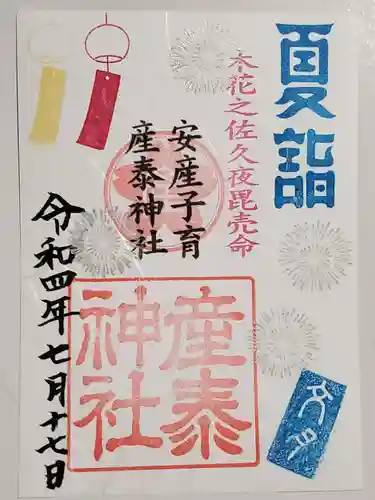 夏詣
木花之佐久夜毘売命
安産子育
産泰神社
産泰
神社
文月
令和四年七月十七日